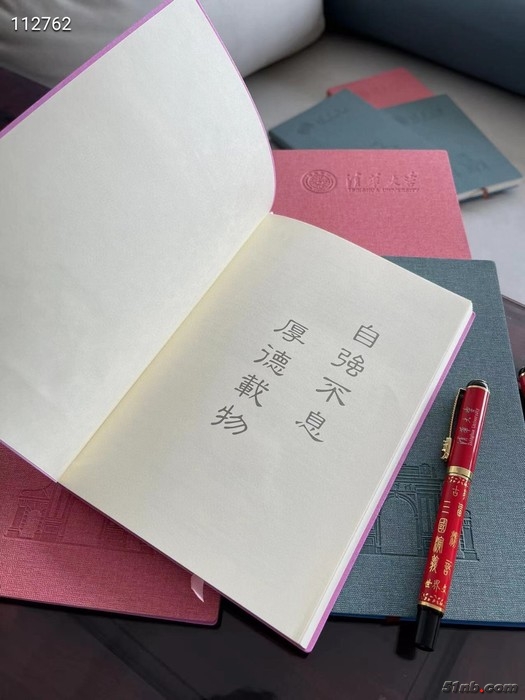 112762
清華大学
TSINGHUA UNIVERSITY
自強不息
厚德載物
三國演義
51nb.com